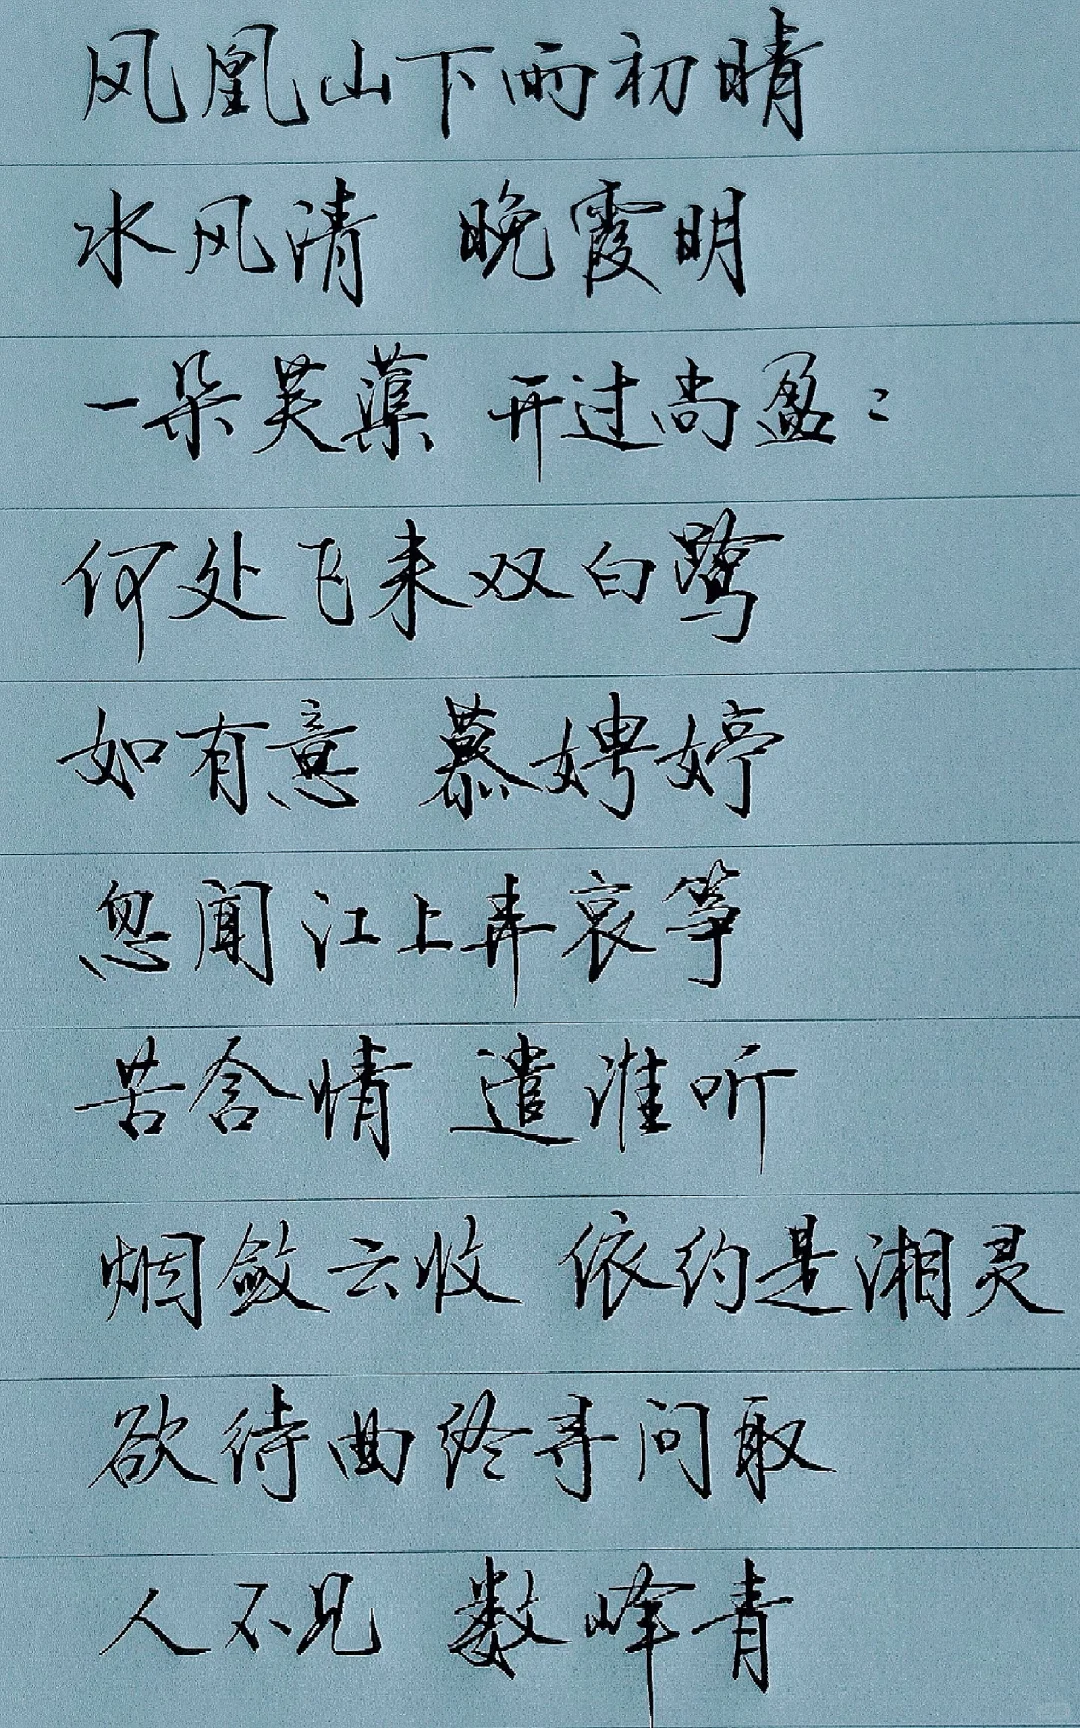 凤凰山下雨初晴
水风清 晚霞明
一朵芙蕖 开过尚盈:
何处飞来双白鹭
如有意 慕娉婷
忽闻江上弄哀筝
苦含情 遣谁听
烟敛云收 依约是湘灵
欲待曲终寻问取
人不见 数峰青